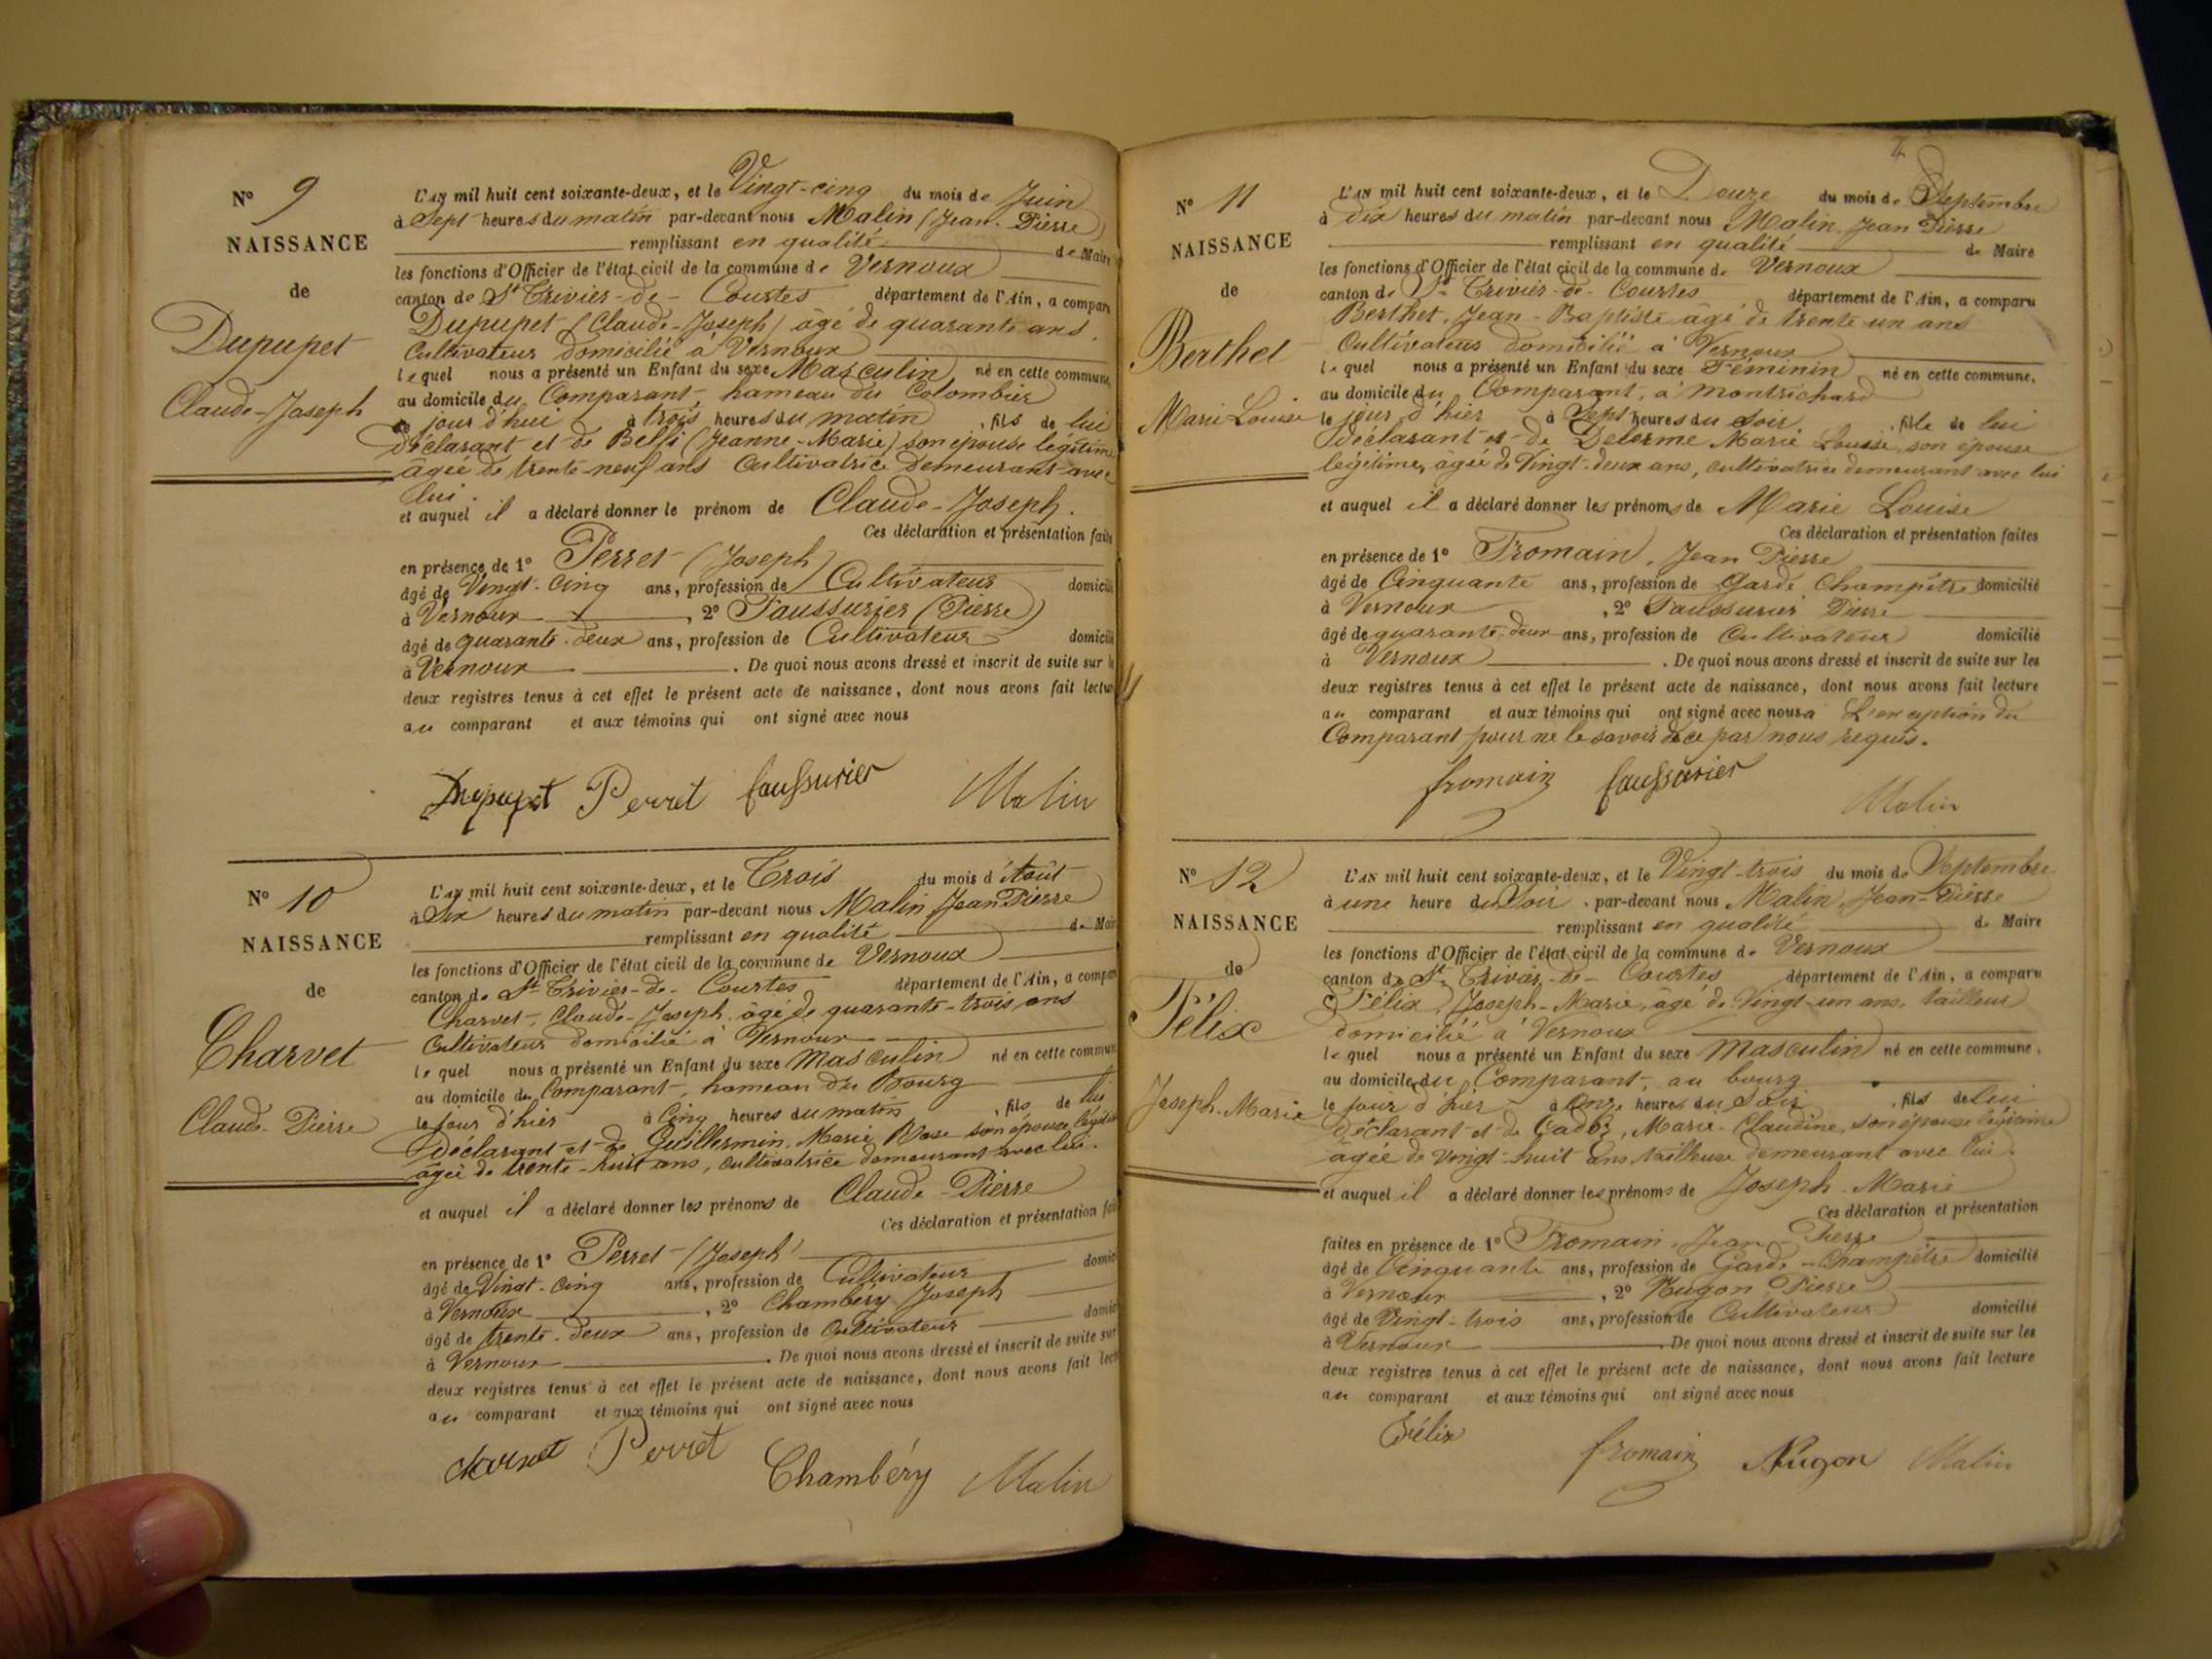 N° 9
NAISSANCE
de
Dupupet
Claude-Joseph
L'AN mil huit cent soixante-deux, et le Vingt-cinq du mois de Juin
à Sept heures du matin par-devant nous Malin (Jean-Pierre)
remplissant en qualité de Maire
les fonctions d'Officier de l'état civil de la commune de Vernoux
canton de St Trivier-de-Courtes département de l'Ain, a compar
Dupupet (Claude-Joseph) âgé de quarante ans
Cultivateur domicilié à Vernoux
lequel nous a présenté un Enfant du sexe Masculin né en cette commune,
au domicile du Comparant, hameau du Colombier
ce jour d'hui à trois heures du matin, fils de lui
Déclarant et de (Jeanne-Marie) son épouse légitime
âgée de trente-neuf ans Cultivatrice Demeurant avec
lui.
et auquel il a déclaré donner le prénom de Claude-Joseph.
Ces déclaration et présentation faites
en présence de 1° Perret (Joseph)
âgé de Vingt-cinq ans, profession de Cultivateur domicilié
à Vernoux, 2° Faussurier (Pierre)
âgé de quarante-deux ans, profession de Cultivateur domicilié
à Vernoux. De quoi nous avons dressé et inscrit de suite sur le
deux registres tenus à cet effet le présent acte de naissance, dont nous avons fait lectur
au comparant et aux témoins qui ont signé avec nous
Dupupet Perret faussurier Malin
N° 10
NAISSANCE
de
Charvet
Claude-Pierre
L'AN mil huit cent soixante-deux, et le Trois du mois d'Août
à Six heures du matin par-devant nous Malin Jean Pierre
remplissant en qualité de Mair
les fonctions d'Officier de l'état civil de la commune de Vernoux
canton de St Trivier-de-Courtes département de l'Ain, a compar
Charvet, Claude-Joseph, âgé de quarante-trois ans
Cultivateur domicilié à Vernoux
lequel nous a présenté un Enfant du sexe Masculin né en cette commun
au domicile du Comparant, hameau du Bourg
le jour d'hier à Cinq heures du matin, fils de lui
Déclarant et de Guillermin, Marie Rose son épouse légitime
âgée de trente-huit ans, cultivatrice demeurant avec lui.
et auquel il a déclaré donner les prénoms de Claude-Pierre
Ces déclaration et présentation fai
en présence de 1° Perret (Joseph)
âgé de Vingt-cinq ans, profession de Cultivateur domic
à Vernoux, 2° Chambéry Joseph
âgé de trente-deux ans, profession de Cultivateur domic
à Vernoux. De quoi nous avons dressé et inscrit de suite sur
deux registres tenus à cet effet le présent acte de naissance, dont nous avons fait lect
au comparant et aux témoins qui ont signé avec nous
charvet Perret Chambéry Malin
4
N° 11
NAISSANCE
de
Berthet
Marie Louise
L'AN mil huit cent soixante-deux, et le Douze du mois de Septembre
à dix heures du matin par-devant nous Malin, Jean Pierre
remplissant en qualité de Maire
les fonctions d'Officier de l'état civil de la commune de Vernoux
canton de St Trivier-de-Courtes département de l'Ain, a comparu
Berthet, Jean-Baptiste âgé de trente un ans
Cultivateur domicilié à Vernoux
lequel nous a présenté un Enfant du sexe Féminin né en cette commune,
au domicile du Comparant, à Montrichard
le jour d'hier à Sept heures du Soir, fille de lui
déclarant et de Delorme Marie Louise, son épouse
légitime, âgée de Vingt-deux ans, cultivatrice demeurant avec lui
et auquel il a déclaré donner les prénoms de Marie Louise
Ces déclaration et présentation faites
en présence de 1° Fromain, Jean Pierre
âgé de Cinquante ans, profession de Garde Champêtre domicilié
à Vernoux, 2° Faussurier Pierre
âgé de quarante-deux ans, profession de Cultivateur domicilié
à Vernoux. De quoi nous avons dressé et inscrit de suite sur les
deux registres tenus à cet effet le présent acte de naissance, dont nous avons fait lecture
au comparant et aux témoins qui ont signé avec nous à L'exception du
Comparant pour ne le savoir de ce par nous requis.
fromain faussurier Malin
N° 12
NAISSANCE
de
Félix
Joseph-Marie
L'AN mil huit cent soixante-deux, et le Vingt-trois du mois de Septembre
à une heure du Soir, par-devant nous Malin, Jean-Pierre
remplissant en qualité de Maire
les fonctions d'Officier de l'état civil de la commune de Vernoux
canton de St Trivier-de-Courtes département de l'Ain, a comparu
Félix, Joseph-Marie, âgé de Vingt-un ans, tailleur
domicilié à Vernoux
lequel nous a présenté un Enfant du sexe Masculin né en cette commune,
au domicile du Comparant, au bourg
le jour d'hier à Onze heures du Soir, fils de lui
déclarant et de Marie-Claudine, son épouse légitime
âgée de vingt-huit ans tailleuse demeurant avec lui.
et auquel il a déclaré donner les prénoms de Joseph-Marie
Ces déclaration et présentation
faites en présence de 1° Fromain, Jean-Pierre
âgé de Cinquante ans, profession de Garde-Champêtre domicilié
à Vernoux, 2° Nugon Pierre
âgé de Vingt-trois ans, profession de Cultivateur domicilié
à Vernoux. De quoi nous avons dressé et inscrit de suite sur les
deux registres tenus à cet effet le présent acte de naissance, dont nous avons fait lecture
au comparant et aux témoins qui ont signé avec nous
Félix fromain Nugon Malin